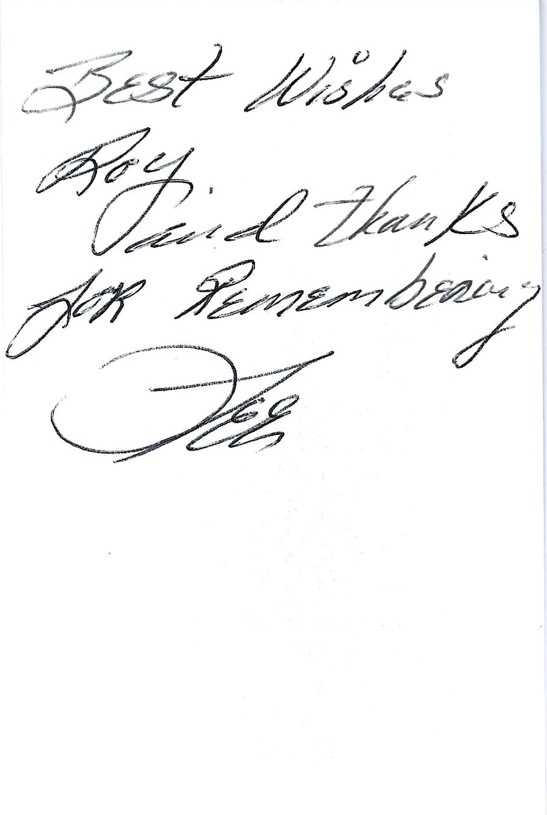 Best Wishes
Roy
and thanks
for Remembering
Lee